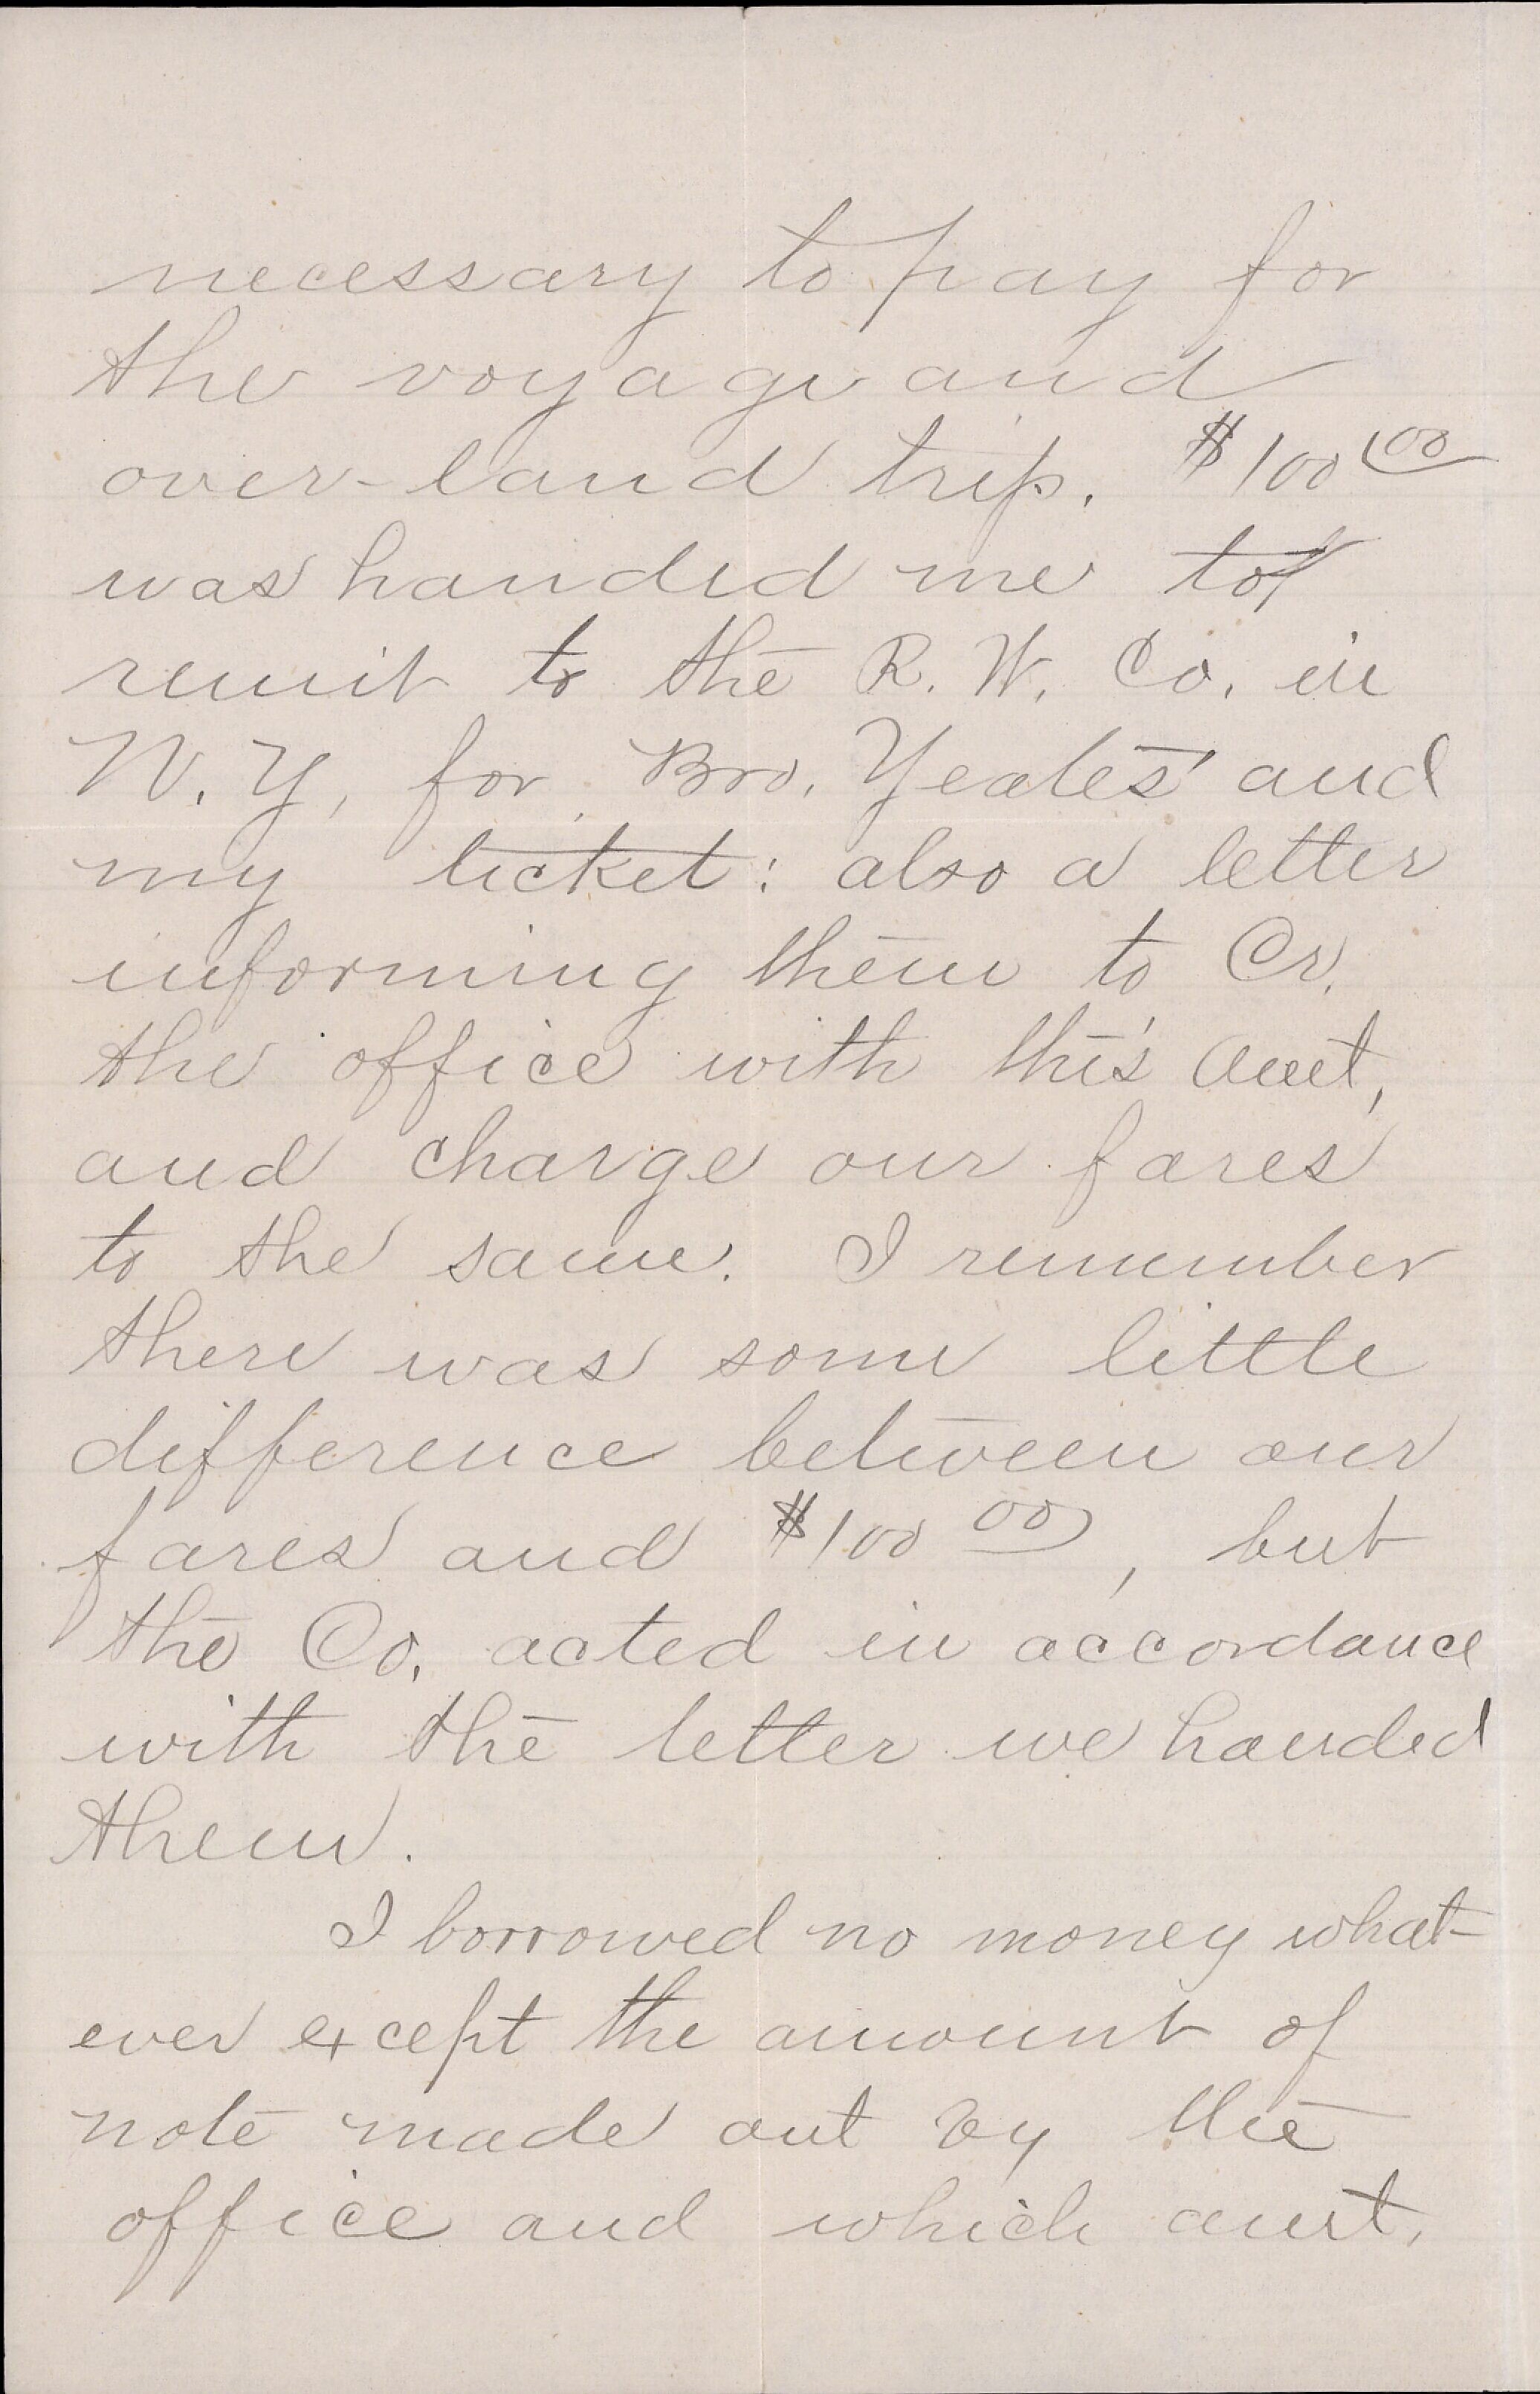 necessary to pay for
the voyage and
over-land trip. $100 00
was handed me to
remit to the R. W. Co. in
N. Y, for Bro. Yeates' and
my ticket: also a letter
informing them to Cr.
the office with this amt,
and charge our fares
to the same. I remember
there was some little
difference between our
fares and $100 00, but
the Co. acted in accordance
with the letter we handed
them.
I borrowed no money what-
ever except the amount of
note made out by the
office and which amt.